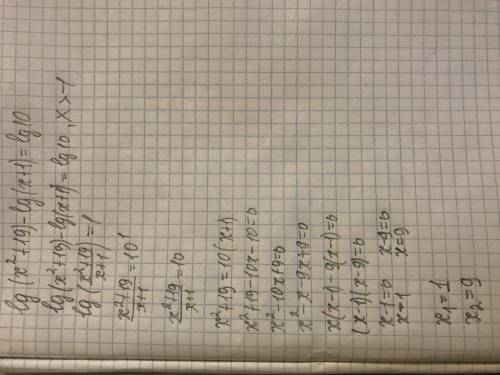 lg(x²+19)-lg(x+1)=lg10
lg(x²+19)-lg(x+1)=lg10, x>-1
lg(x²+19/x+1)=1
x²+19/x+1=10¹
x²+19/x+1=10
x²+19=10(x+1)
x²+19-10x-10=0
x²-10x+9=0
x²-x-9x+9=0
x(x-1)-9(x-1)=0
(x-1)(x-9)=0
x-1=0 x-9=0
x=1 x=9
x₁=1
x₂=9